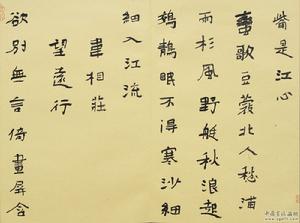 觜是江心
蠻歌豆蔻北人愁浦
雨杉風野艇秋浪起
鵁鶄眠不得寒沙細
細入江流
韋相莊
望遠行
欲別無言倚畫屏含